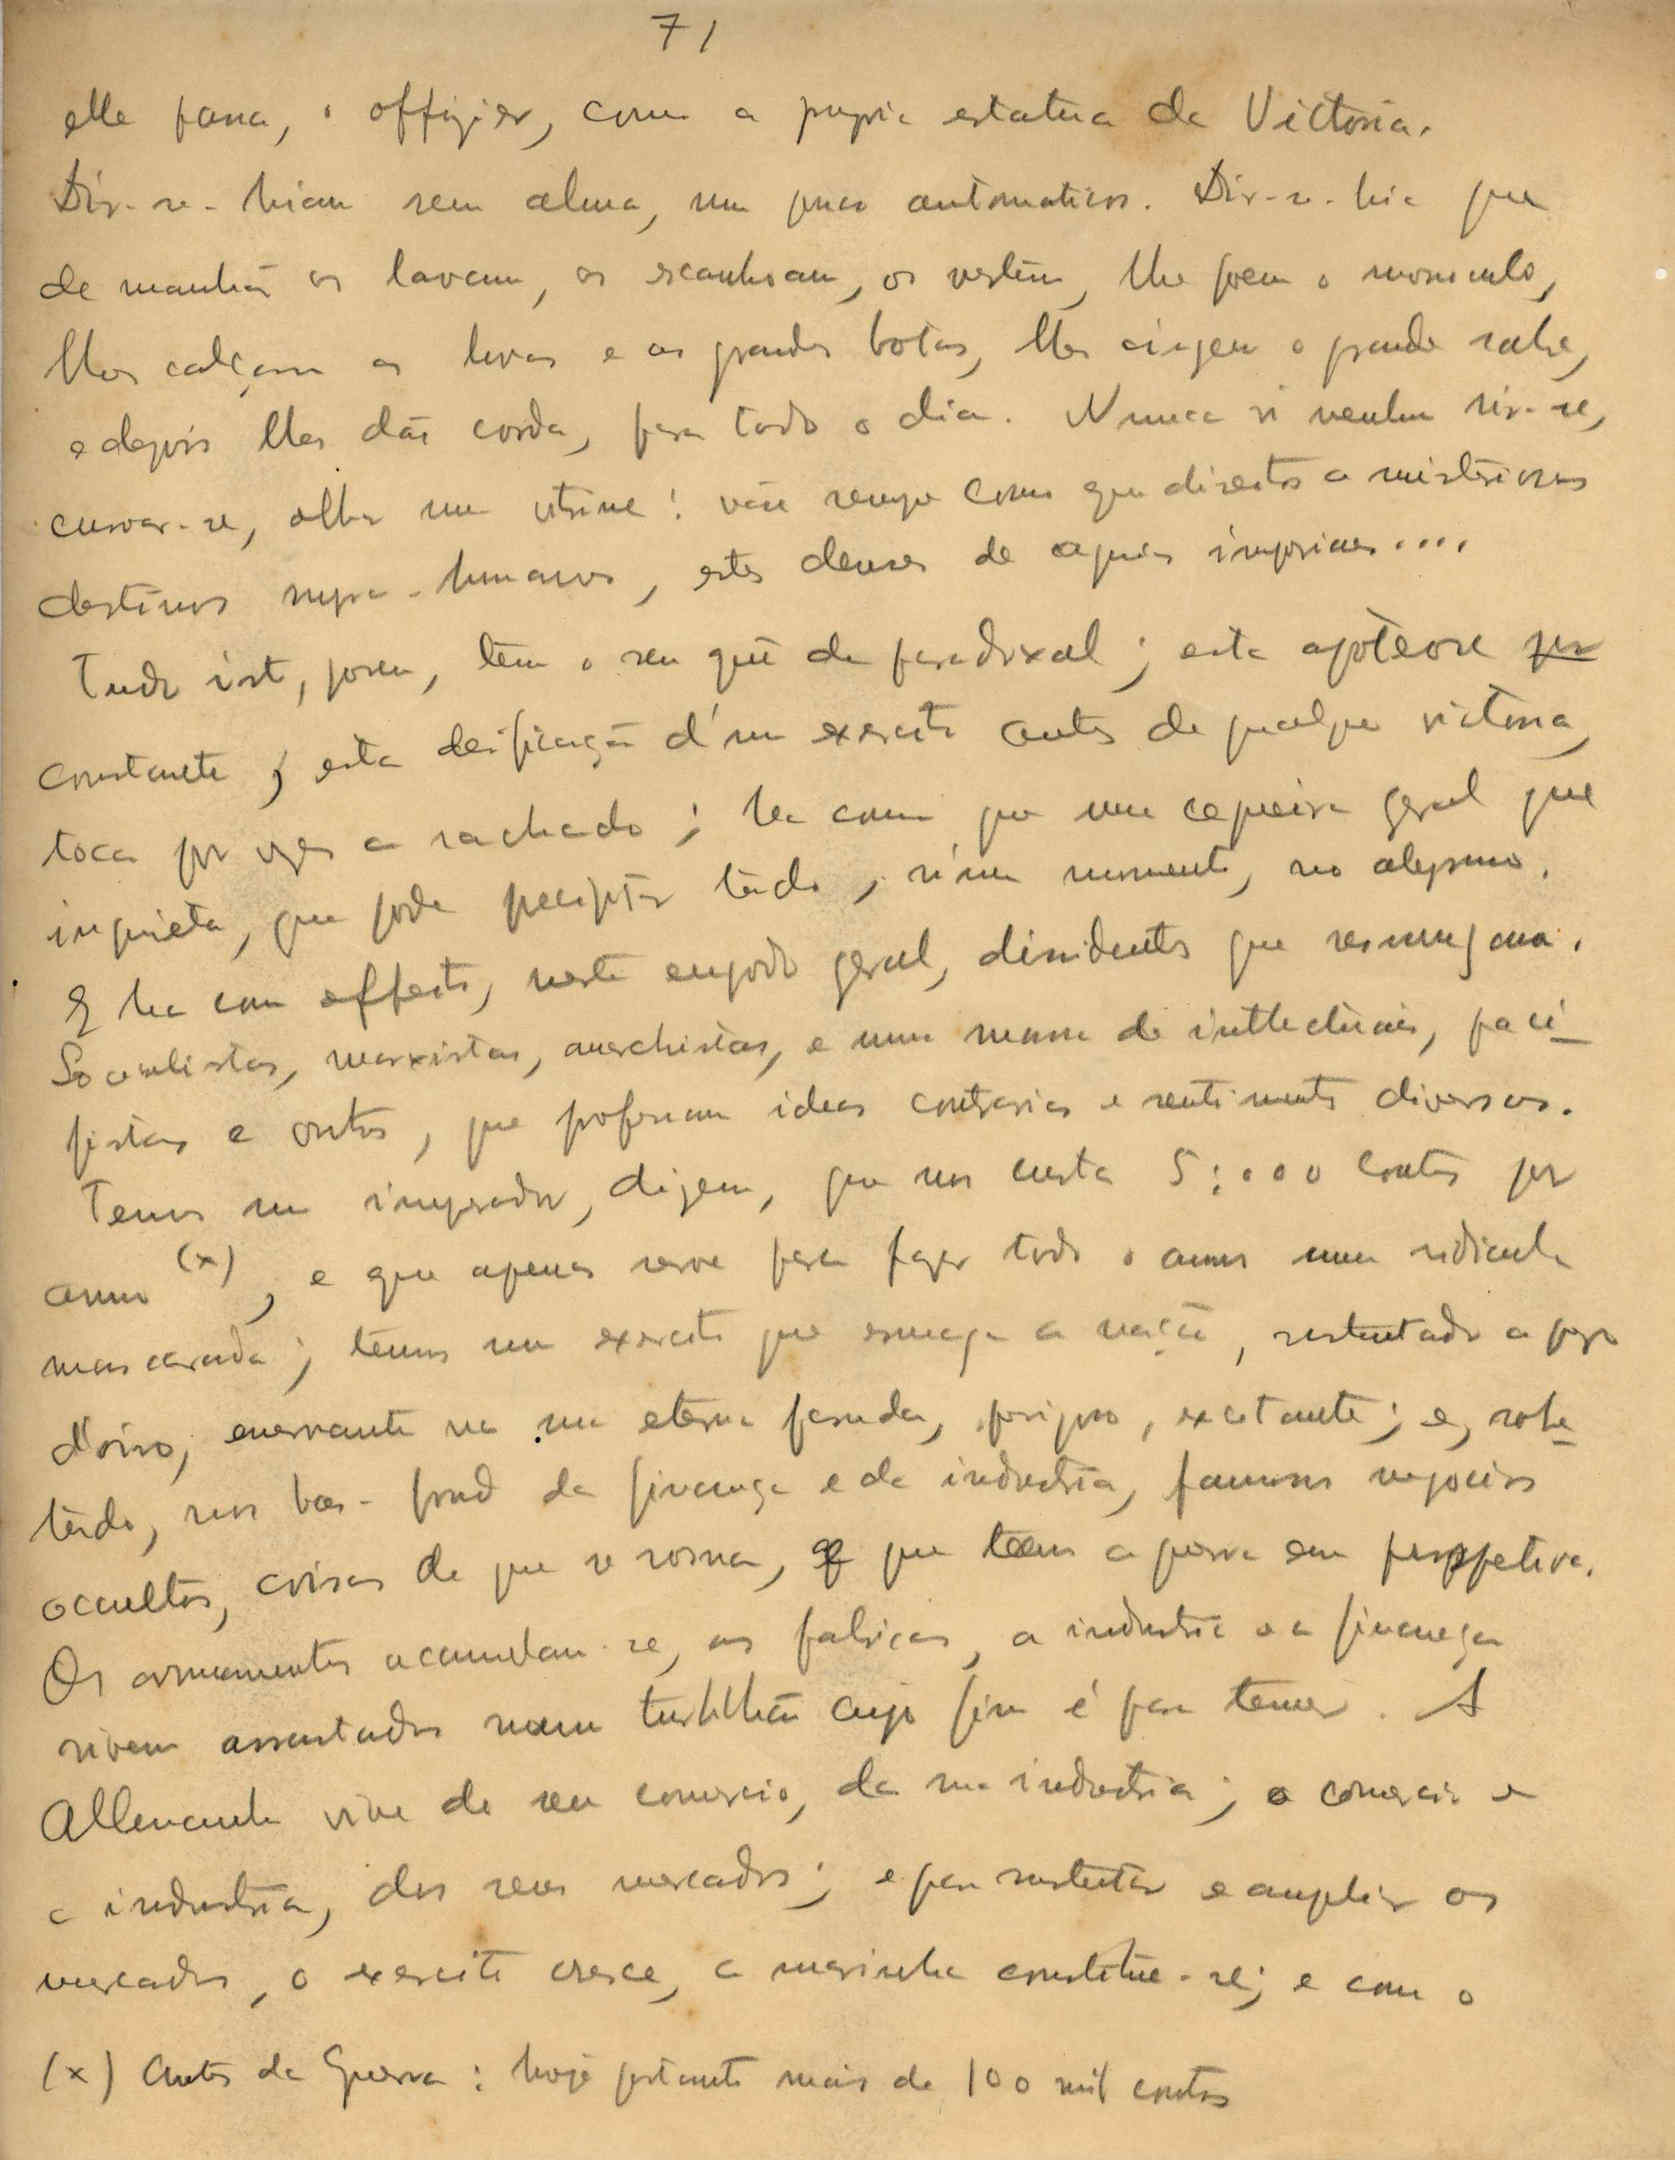 71
elle passa, o offizier, como a propria estatua da Victoria.
Dir-se-hiam sem alma, um pouco automaticos. Dir-se-hia que
de manhã os lavam, os escanhoam, os vestem, lhe poem o monoculo,
lhes calçam as luvas e as grandes botas, lhes cingem o grande sabre,
e depois lhes dão corda, para todo o dia. Nunca vi nenhum rir-se,
curvar-se, olhar uma vitrine: vão sempre como que direitos a misteriosos
destinos supra-humanos, estes deuses de aguias imperiaes....
Tudo isto, porem, tem o seu quê de paradoxal; esta apoteose
constante, esta deificação d'um exercito antes de qualquer victoria,
toca por vezes a rachado; ha como que uma cegueira geral que
inquieta, que pode precipitar tudo, n'um momento, no abysmo.
E ha com effeito, neste engodo geral, dissidentes que resmungam.
Socialistas, marxistas, anarchistas, e uma massa de intlectuais, paci-
fistas e outros, que professam ideas contrarias e sentimentos diversos.
Temos um imperador, dizem, que nos custa 5:000 contos por
anno (x), e que apenas serve para fazer todo o anno uma ridicula
mascarada; temos um exercito que esmaga a nação, sustentado a peso
d'oiro, enervante na sua eterna parada, perigoso, excitante; e, sobre-
tudo, nos bas-fond da finança e da industria, famosos negocios
occultos, coisas de que se rosna, que teem a guerra em perspetiva.
Os armamentos acumulam-se, as fabricas, a industria e a finança
vivem assustados num turbilhão cujo fim é para temer. A
Allemanha vive do seu comercio, da sua industria; o comercio e
a industria, dos seus mercados; e para sustentar e ampliar os
mercados, o exercito cresce, a marinha constitue-se; e com o
(x) Antes da Guerra: hoje portanto mais de 100 mil contos